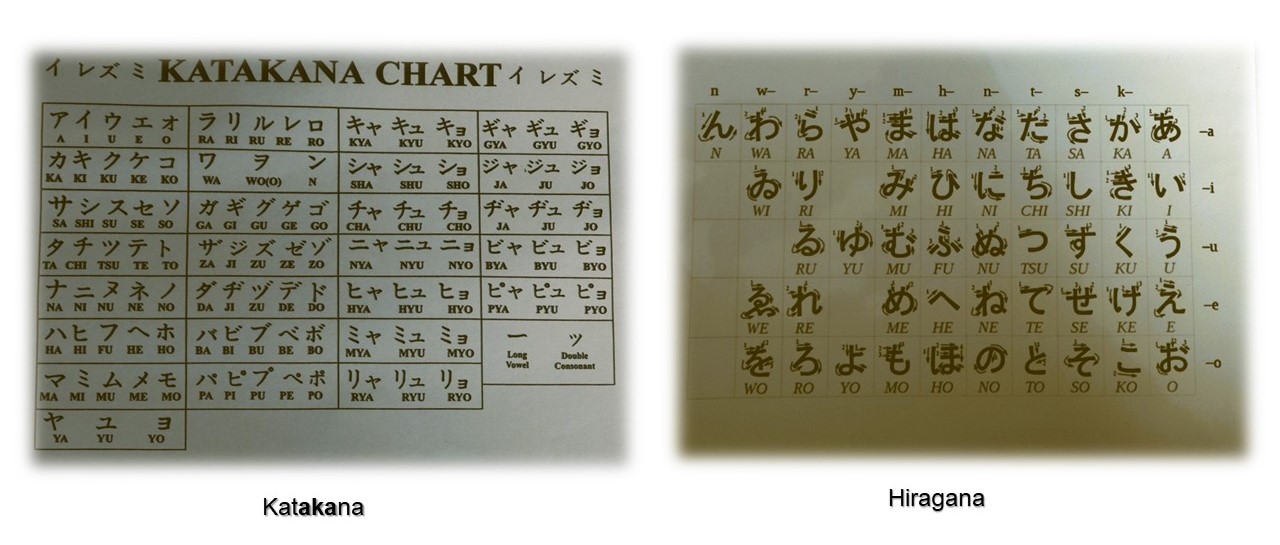 イ レ ズ ミ KATAKANA CHART イ レ ズ ミ
ア イ ウ エ オ ラ リ ル レ ロ キャ キュ キョ ギャ ギュ ギョ
A I U E O RA RI RU RE RO KYA KYU KYO GYA GYU GYO
カ キ ク ケ コ ワ ヲ ン シャ シュ ショ ジャ ジュ ジョ
KA KI KU KE KO WA WO(O) N SHA SHU SHO JA JU JO
サ シ ス セ ソ ガ ギ グ ゲ ゴ チャ チュ チョ ヂャ ヂュ ヂョ
SA SHI SU SE SO GA GI GU GE GO CHA CHU CHO JA JU JO
タ チ ツ テ ト ザ ジ ズ ゼ ゾ ニャ ニュ ニョ ビャ ビュ ビョ
TA CHI TSU TE TO ZA JI ZU ZE ZO NYA NYU NYO BYA BYU BYO
ナ ニ ヌ ネ ノ ダ ヂ ヅ デ ド ヒャ ヒュ ヒョ ピャ ピュ ピョ
NA NI NU NE NO DA JI ZU DE DO HYA HYU HYO PYA PYU PYO
ハ ヒ フ ヘ ホ バ ビ ブ ベ ボ ミャ ミュ ミョ ー ッ
HA HI FU HE HO BA BI BU BE BO MYA MYU MYO Long Double
Vowel Consonant
マ ミ ム メ モ パ ピ プ ペ ポ リャ リュ リョ
MA MI MU ME MO PA PI PU PE PO RYA RYU RYO
ヤ ユ ヨ
YA YU YO
Katakana
n w– r– y– m– h– n– t– s– k–
ん わ ら や ま は な た さ か あ –a
N WA RA YA MA HA NA TA SA KA A
ゐ り み ひ に ち し き い –i
WI RI MI HI NI CHI SHI KI I
る ゆ む ふ ぬ つ す く う –u
RU YU MU FU NU TSU SU KU U
ゑ れ め へ ね て せ け え –e
WE RE ME HE NE TE SE KE E
を ろ よ も ほ の と そ こ お –o
WO RO YO MO HO NO TO SO KO O
Hiragana